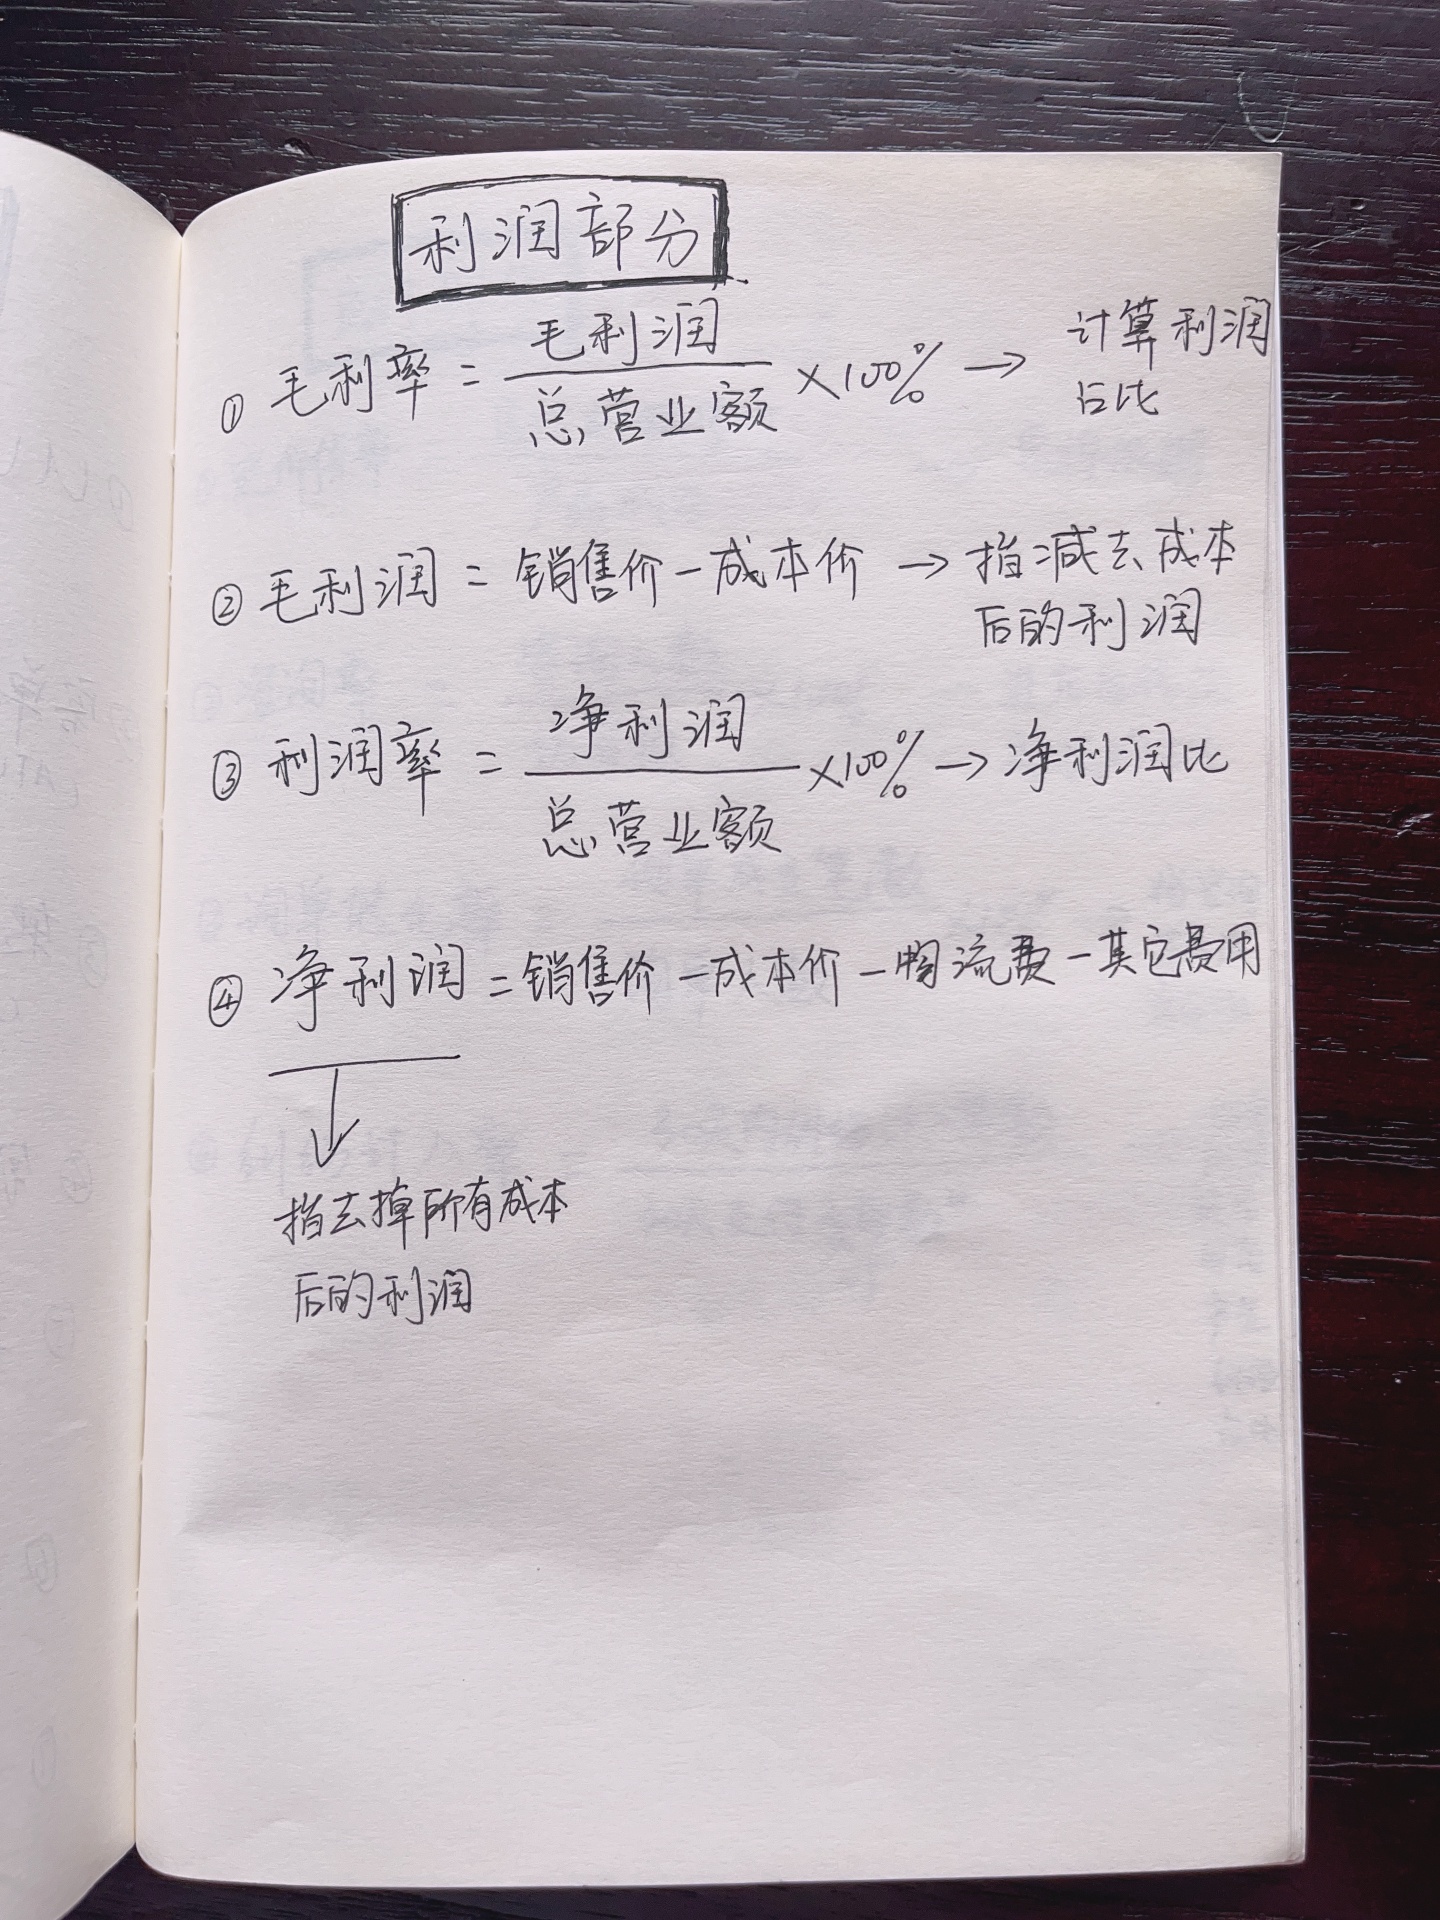 利润部分
① 毛利率 = 毛利润 / 总营业额 ×100% → 计算利润
占比
② 毛利润 = 销售价 - 成本价 → 指减去成本
后的利润
③ 利润率 = 净利润 / 总营业额 ×100% → 净利润比
④ 净利润 = 销售价 - 成本价 - 物流费 - 其它费用
↓
指去掉所有成本
后的利润